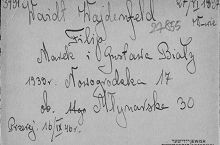 Waidt Wajdenfeld
27855
Filip
Marek i Gustawa Biały
1939r. Nowogrodzka 17
ob. Młynarska 30
Przesz. 16/IX 40r.